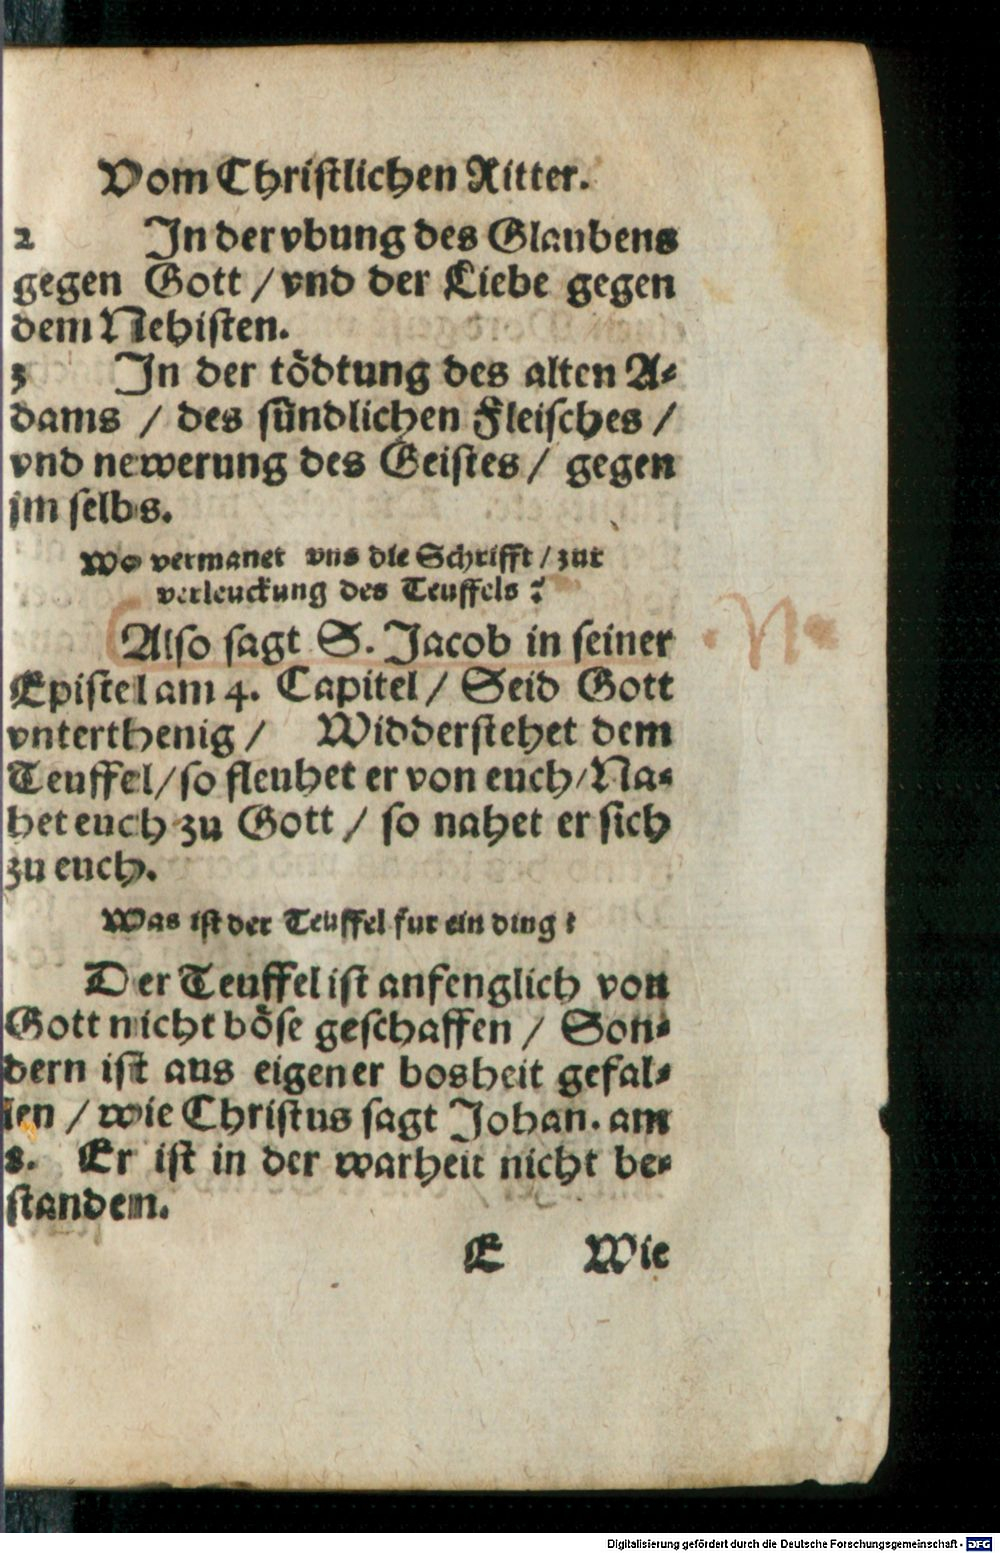 Vom Christlichen Ritter.
2 In der vbung des Glaubens
gegen Gott / vnd der Liebe gegen
dem Nehisten.
3 In der tödtung des alten A-
dams / des sündlichen Fleisches /
vnd newerung des Geistes / gegen
jm selbs.
Wo vermanet vns die Schrifft / zur
verleuckung des Teuffels?
Also sagt S. Jacob in seiner
Epistel am 4. Capitel / Seid Gott
vnterthenig / Widderstehet dem
Teuffel / so fleuhet er von euch / Na-
het euch zu Gott / so nahet er sich
zu euch.
Was ist der Teuffel fur ein ding?
Der Teuffel ist anfenglich von
Gott nicht böse geschaffen / Son-
dern ist aus eigener bosheit gefal-
len / wie Christus sagt Johan. am
8. Er ist in der warheit nicht be-
standen.
E Wie
Digitalisierung gefördert durch die Deutsche Forschungsgemeinschaft - DFG